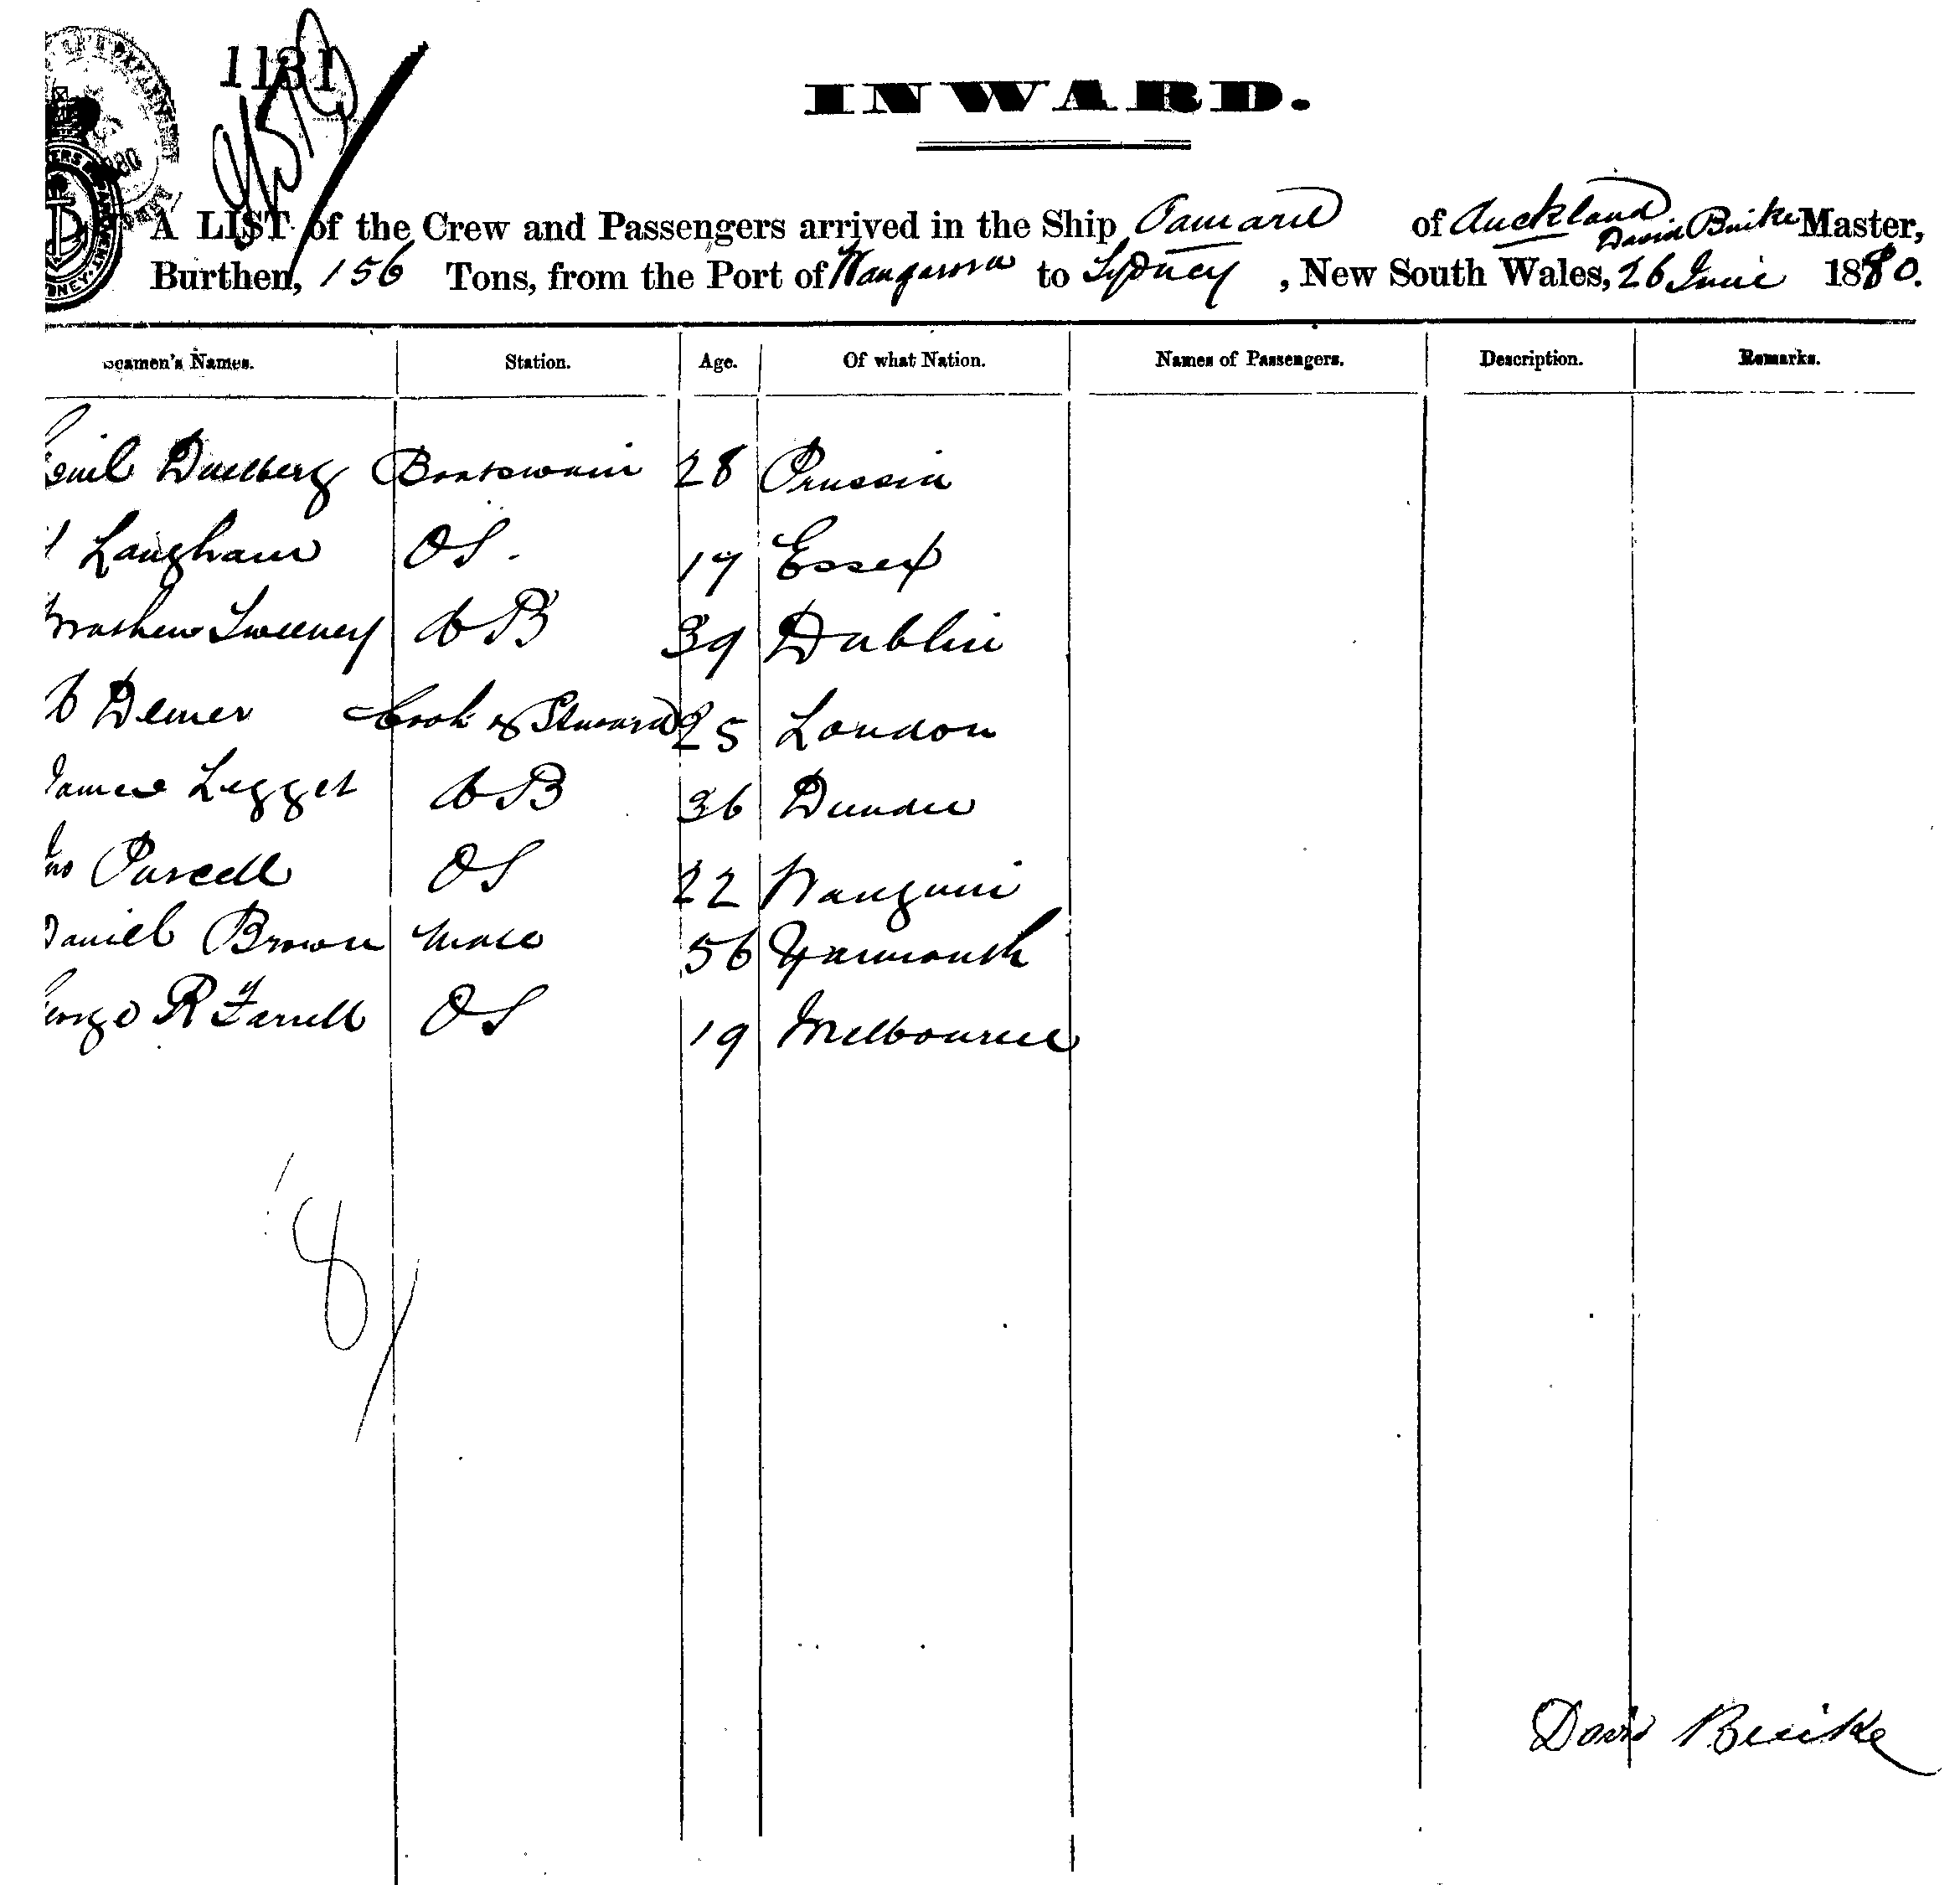 1131
INWARD.
A LIST of the Crew and Passengers arrived in the Ship of Auckland David Buike Master,
Burthen, 156 Tons, from the Port of Wangaroa to Sydney, New South Wales, 26 June 1880.
Seamen's Names. Station. Age. Of what Nation. Names of Passengers. Description. Remarks.
Boatswain 28 Prussia
Langham OS. 17 Essex
Mathew Sweeney AB 39 Dublin
Cook & Steward 25 London
James Legget AB 36 Dundee
Purcell OS 22
Daniel Brown Mate 56 Yarmouth
George R Farrell OS 19 Melbourne
8/
David Buike